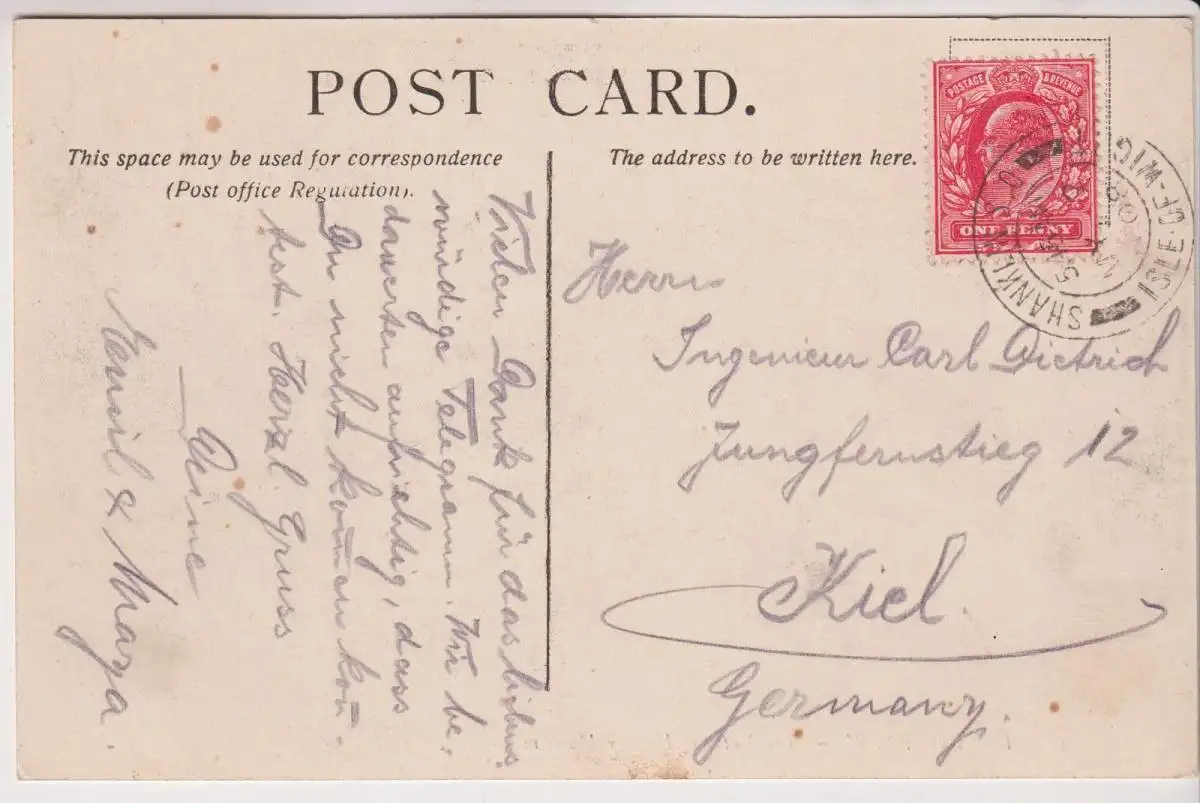 POST CARD.
This space may be used for correspondence
(Post office Regulation).
The address to be written here.
POSTAGE & REVENUE
ONE PENNY
SHANKLIN ISLE-OF-WIG
MY
Herrn
Ingenieur Carl Dietrich
Jungfernstieg 12
Kiel.
Germany.
Vielen Dank für das liebens
würdige Telegramm. Wir be-
dauerten aufrichtig, dass
Du nicht kom̄en kon̄-
test. Herzl. Gruss
Deine
& Marya.